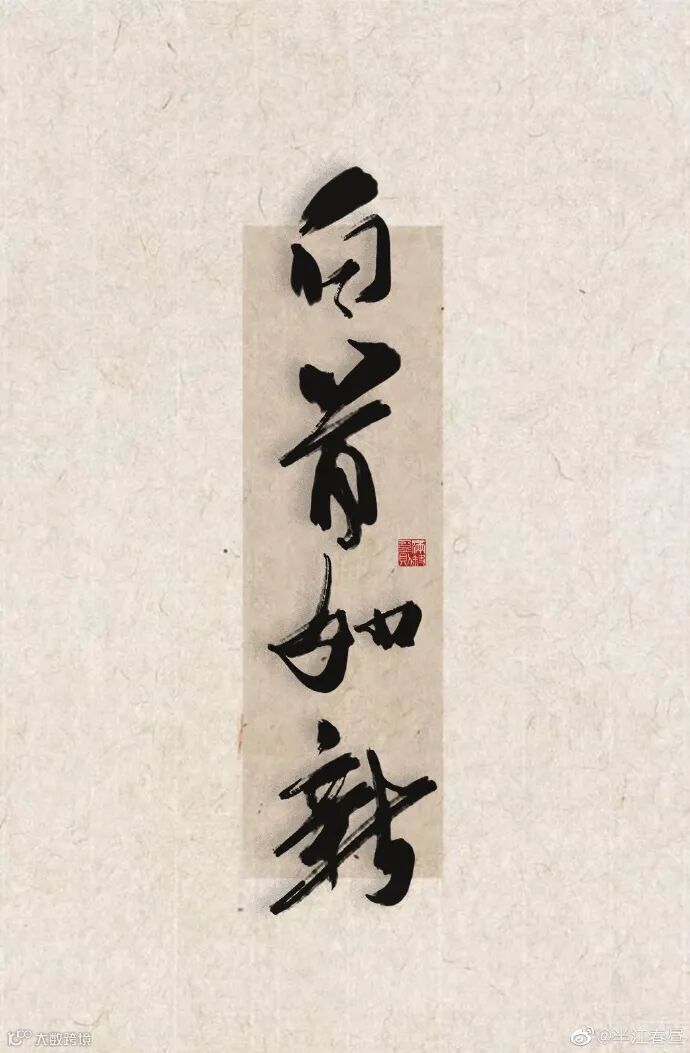 白首如新
大数跨境
@半江春昼